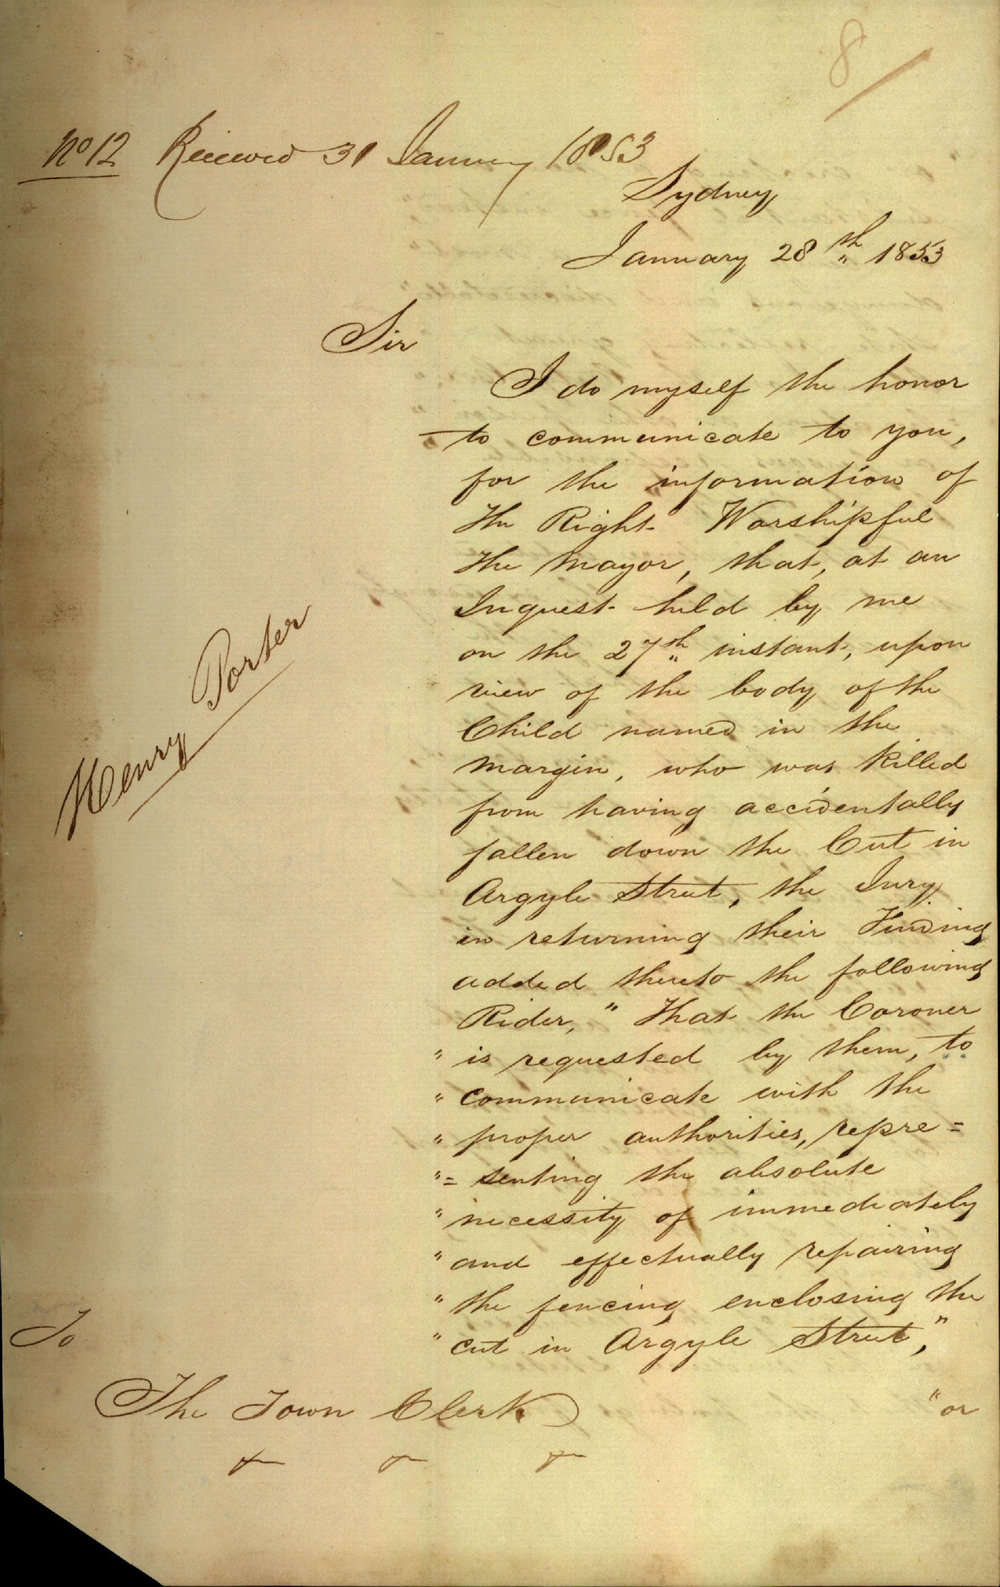 8/
No 12 Received 31 January 1853
Sydney
January 28th 1853
Sir
I do myself the honor
to communicate to you,
for the information of
The Right Worshipful
the Mayor, that, at an
Inquest held by me
on the 27th instant, upon
view of the body of the
Child named in the
Margin, who was killed
from having accidentally
fallen down the Cut in
Argyle Street, the Jury
in returning their Finding
added thereto the following
Rider, "That the Coroner
" is requested by them, to
" communicate with the
" proper authorities, repre=
"= senting the absolute
" necessity of immediately
" and effectually repairing
" the fencing enclosing the
" cut in Argyle Street,"
Henry Porter
To
The Town Clerk
"or